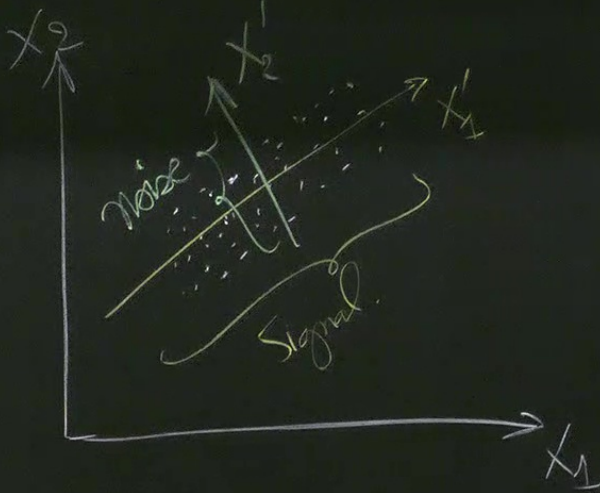 X2
X2'
X1'
Noise
Signal.
X1